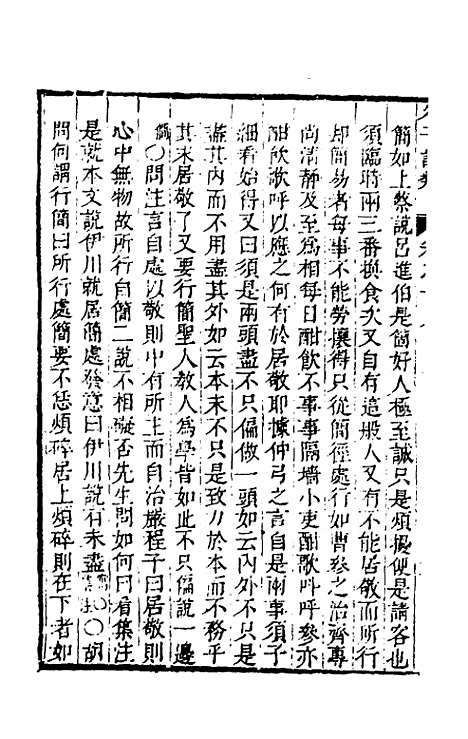 簡如上蔡說呂進伯是箇好人極至誠只是煩擾便是請客也
須臨時兩三番換食次又自有這般人又有不能居敬而所行
却簡易者每事不能勞攘得只從簡徑處行如曹參之治齊專
尚清靜及至為相每日酣飲不事事隔墻小吏酣歌呌呼參亦
酣飲歌呼以應之何有於居敬耶據仲弓之言自是兩事須子
細看始得又曰須是兩頭盡不只偏做一頭如云內外不只是
盡其內而不用盡其外如云本末不只是致力於本而不務乎
其末居敬了又要行簡聖人教人為學皆如此不只偏說一邊
〇問注言自處以敬則中有所主而自治嚴程子曰居敬則
心中無物故所行自簡二說不相礙否先生問如何曰看集注
是就本文說伊川就居簡處發意曰伊川說有未盡〇胡
問何謂行簡曰所行處簡要不恁煩碎居上煩碎則在下者如